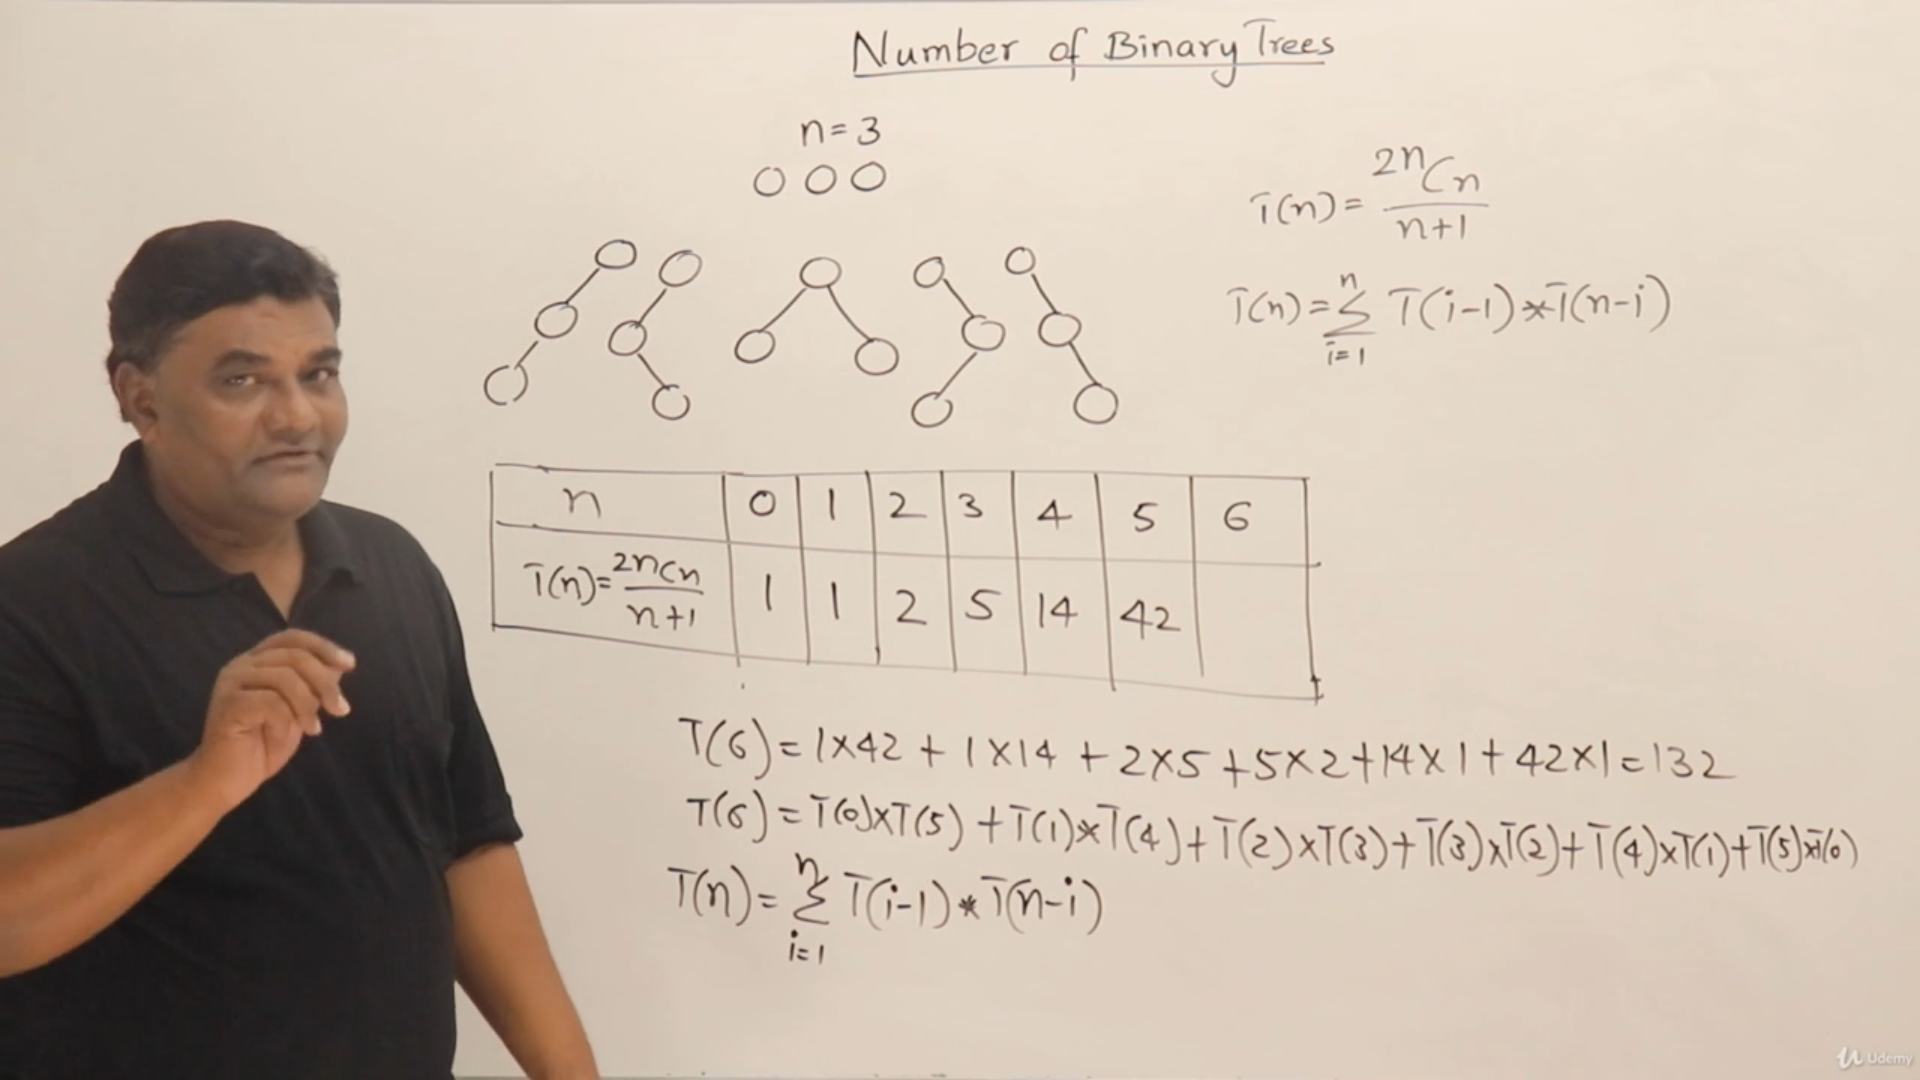 Number of Binary Trees
n=3
T(n)= 2nCn / n+1
T(n)= n Σ i=1 T(i-1)*T(n-i)
n 0 1 2 3 4 5 6
T(n)= 2nCn / n+1 1 1 2 5 14 42
T(6)=1×42 + 1×14 + 2×5 +5×2+14×1+42×1=132
T(6)=T(0)×T(5) +T(1)*T(4)+T(2)×T(3)+T(3)×T(2)+T(4)×T(1)+T(5)×T(0)
T(n)= n Σ i=1 T(i-1)*T(n-i)
Udemy